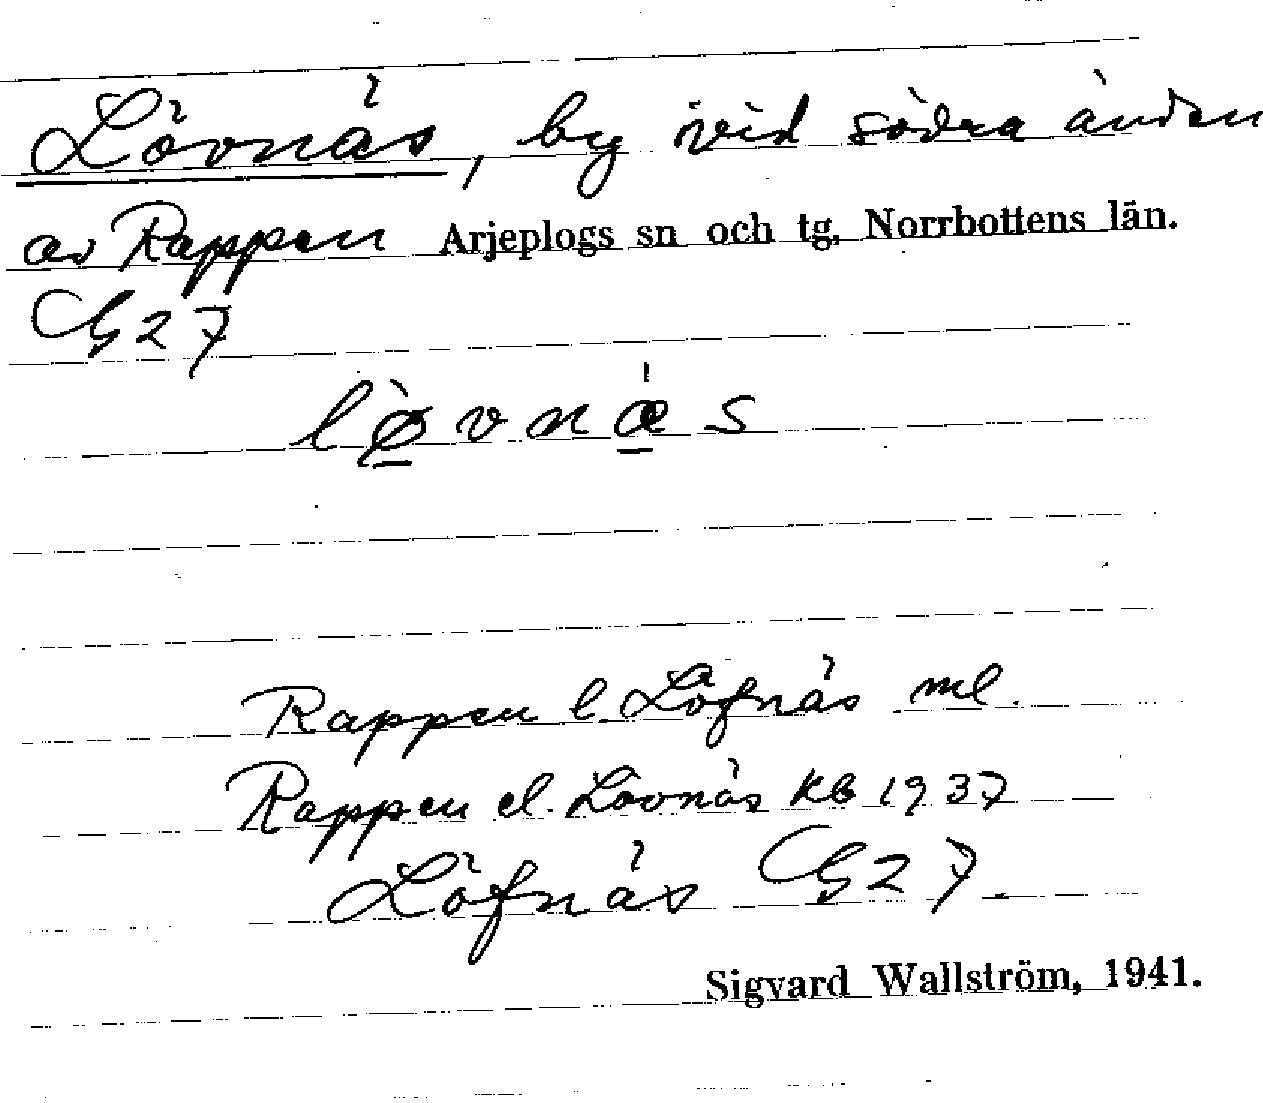 Lövnäs, by vid södra änden
av Rappen Arjeplogs sn och tg, Norrbottens län.
G 27
lø̀vnæ̍s
Rappen l. Löfnäs ml.
Rappen el. Lövnäs kb 1937
Löfnäs G 27.
Sigvard Wallström, 1941.